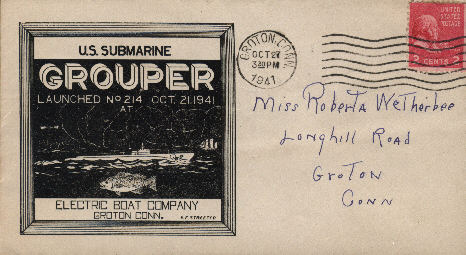 U.S. SUBMARINE
GROUPER
LAUNCHED No 214 OCT. 21. 1941
AT
ELECTRIC BOAT COMPANY
GROTON CONN.
GROTON, CONN.
OCT 27
3 30 PM
1941
UNITED
STATES
POSTAGE
2 CENTS 2
Miss Roberta Wetherbee
Longhill Road
Groton
Conn